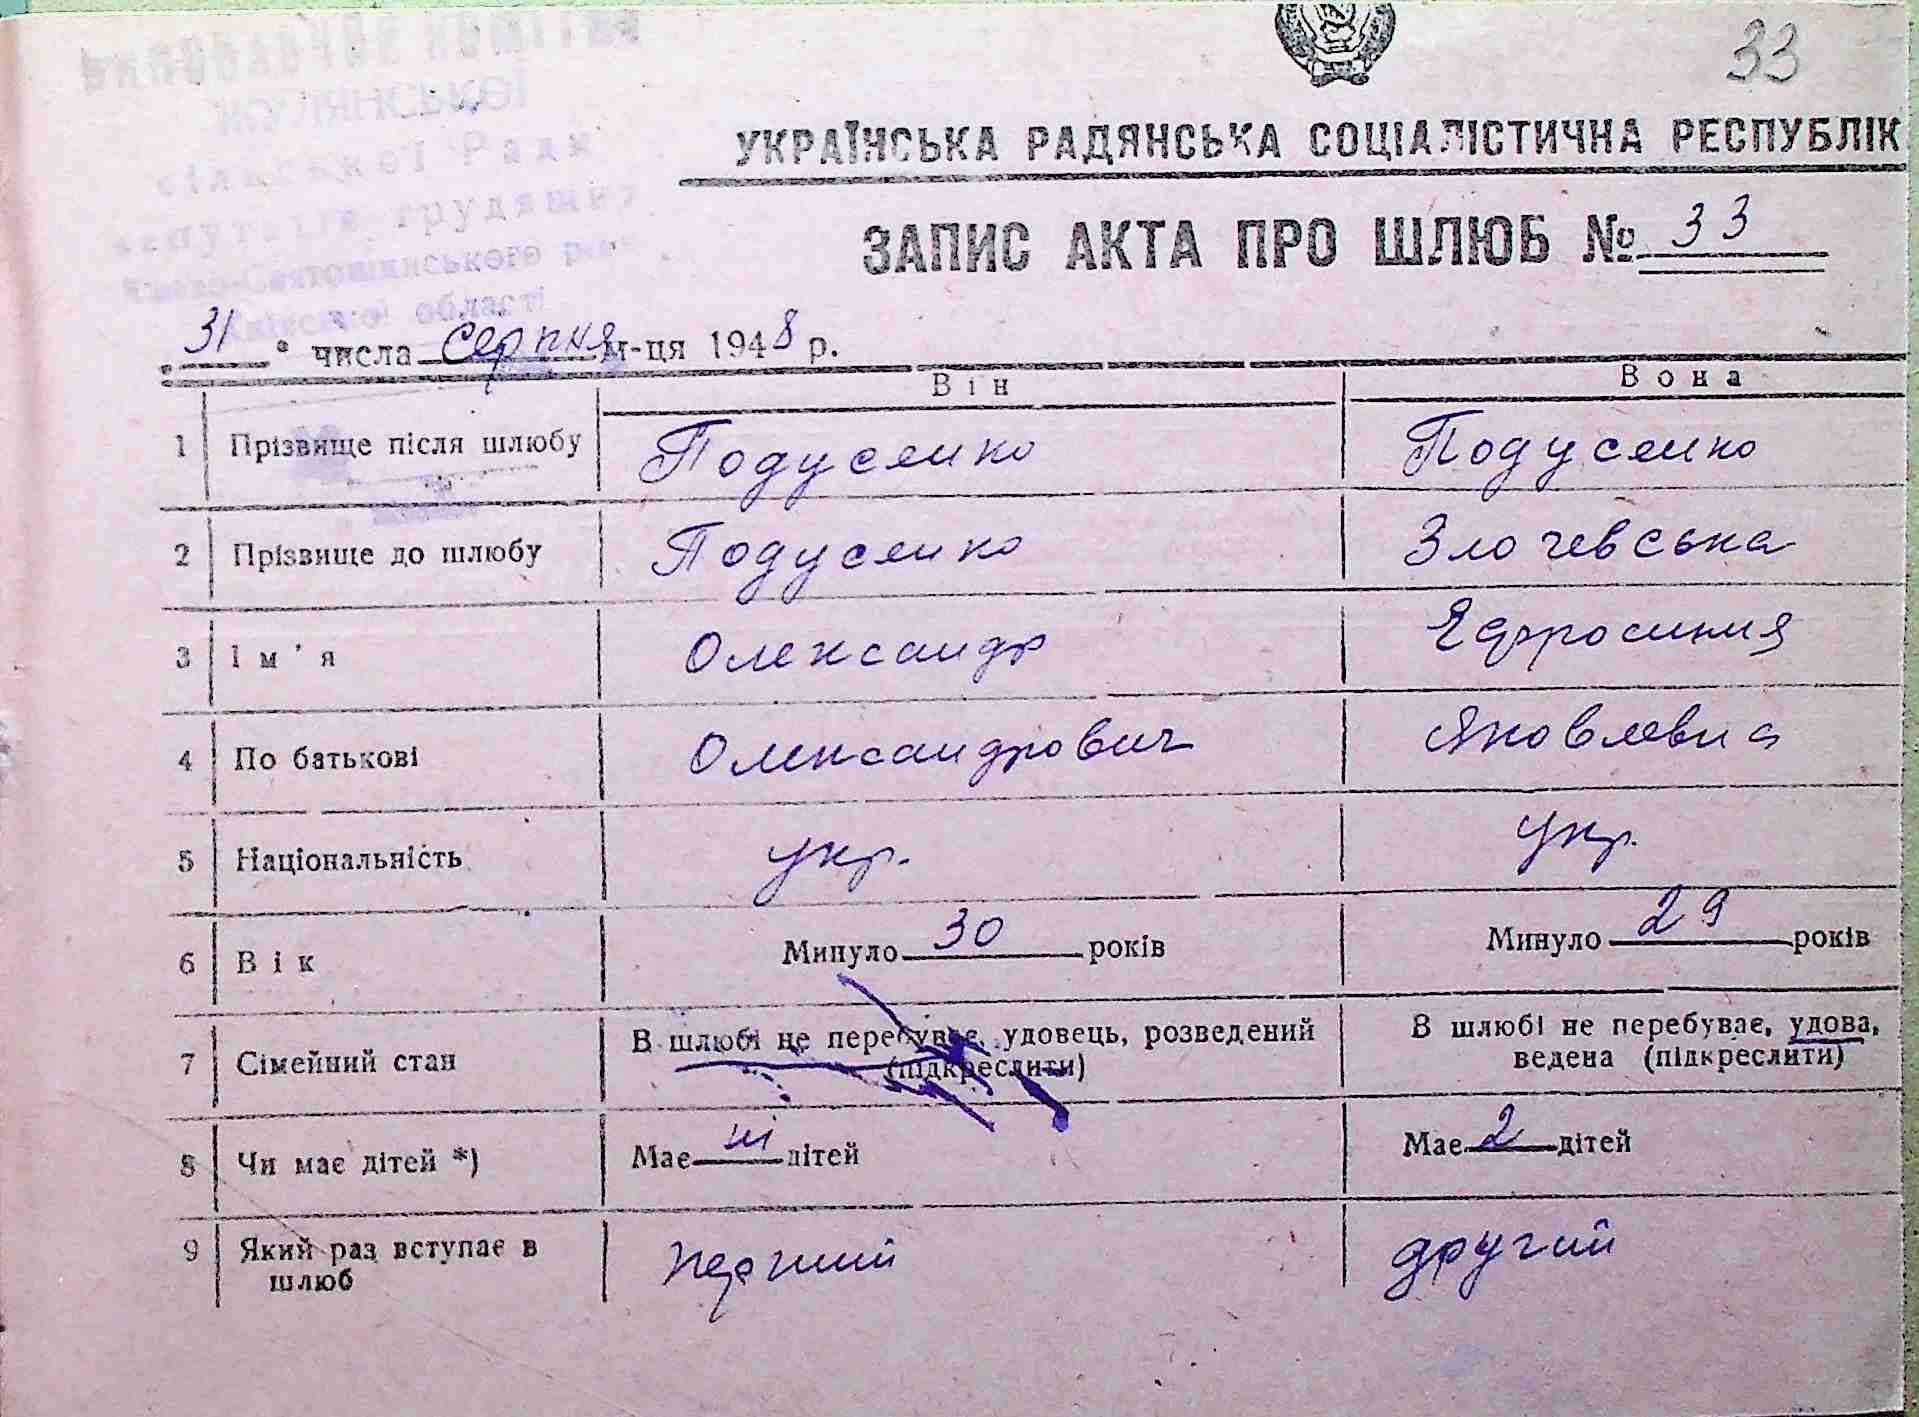 33
ЖУЛЯНСЬКОЇ
сільської Ради
депутатів трудящих
Києво-Святошинського
Київської області
УКРАЇНСЬКА РАДЯНСЬКА СОЦІАЛІСТИЧНА РЕСПУБЛІК
ЗАПИС АКТА ПРО ШЛЮБ № 33
31 числа серпня м-ця 1948 р.
Він Вона
1 Прізвище після шлюбу Подусенко Подусенко
2 Прізвище до шлюбу Подусенко Злочевська
3 Ім'я Олександр Ефросиния
4 По батькові Олександрович Яковлевна
5 Національність укр. укр.
6 Вік Минуло 30 років Минуло 29 років
7 Сімейний стан В шлюбі не перебуває, удовець, розведений (підкреслити) В шлюбі не перебуває, удова, ведена (підкреслити)
8 Чи має дітей *) Має ні дітей Має 2 дітей
9 Який раз вступає в шлюб перший другий